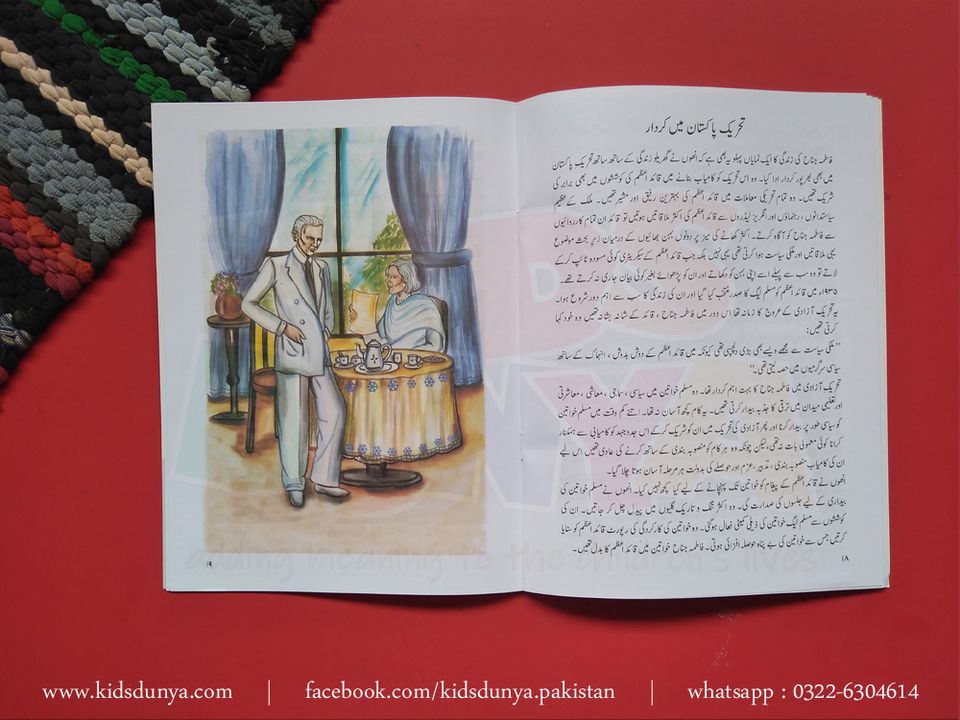 تحریک پاکستان میں کردار
فاطمہ جناح کی زندگی کا ایک نمایاں پہلو یہ بھی ہے کہ انھوں نے گھریلو زندگی کے ساتھ ساتھ تحریک پاکستان
میں بھی بھرپور کردار ادا کیا۔ وہ اس تحریک کو کامیاب بنانے میں قائد اعظم کی کوششوں میں بھی برابر کی
شریک تھیں۔ وہ تمام تحریکی معاملات میں قائد اعظم کی بہترین رفیق اور مشیر تھیں۔ ملک کے عظیم
سیاستدانوں، رہنماؤں اور انگریز لیڈروں سے قائد اعظم کی اکثر ملاقاتیں ہوتیں تو قائد ان تمام کارروائیوں
سے فاطمہ جناح کو آگاہ کرتے۔ اکثر کھانے کی میز پر دونوں بہن بھائیوں کے درمیان زیر بحث موضوع
یہی ملاقاتیں اور ملکی سیاست ہوا کرتی تھی یہی نہیں بلکہ جب قائد اعظم کے سیکریٹری کوئی مسودہ ٹائپ کر کے
لاتے تو وہ سب سے پہلے اسے اپنی بہن کو دکھاتے اور ان کو پڑھوائے بغیر کوئی بیان جاری نہ کرتے تھے۔
۱۹۳۵ء میں قائد اعظم کو مسلم لیگ کا صدر منتخب کیا گیا اور ان کی زندگی کا سب سے اہم دور شروع ہوا۔
یہ تحریک آزادی کے عروج کا زمانہ تھا اس دور میں فاطمہ جناح، قائد کے شانہ بشانہ تھیں وہ خود کہا
کرتی تھیں:
"ملکی سیاست سے مجھے ویسے بھی بڑی دلچسپی تھی کیونکہ میں قائد اعظم کے دوش بدوش، انہماک کے ساتھ
سیاسی سرگرمیوں میں حصہ لیتی تھی۔"
تحریک آزادی میں فاطمہ جناح کا بہت اہم کردار تھا۔ وہ مسلم خواتین میں سیاسی، سماجی، معاشی، معاشرتی
اور تعلیمی میدان میں ترقی کا جذبہ بیدار کرتی تھیں۔ یہ کام کچھ آسان نہ تھا۔ اتنے کم وقت میں مسلم خواتین
کو سیاسی طور پر بیدار کرنا اور پھر آزادی کی تحریک میں ان کو شریک کر کے اس جدوجہد کو کامیابی سے ہمکنار
کرانا کوئی معمولی بات نہ تھی، لیکن چونکہ وہ ہر کام کو منصوبہ بندی کے ساتھ کرنے کی عادی تھیں اس لیے
ان کی کامیاب منصوبہ بندی، تدبیر، عزم اور حوصلے کی بدولت ہر مرحلہ آسان ہوتا چلا گیا۔
انھوں نے قائد اعظم کے پیغام کو خواتین تک پہنچانے کے لیے کیا کچھ نہیں کیا۔ انھوں نے مسلم خواتین کی
بیداری کے لیے جلسوں کی صدارت کی۔ وہ اکثر تنگ و تاریک گلیوں میں پیدل چل کر جاتیں۔ ان کی
کوششوں سے مسلم لیگ خواتین کی ذیلی کمیٹی فعال ہوگئی۔ وہ خواتین کی کارکردگی کی رپورٹ قائد اعظم کو سنایا
کرتیں جس سے خواتین کی بے پناہ حوصلہ افزائی ہوتی۔ فاطمہ جناح خواتین میں قائد اعظم کا بدل تھیں۔
۱۸
۱۹
adding meaning to the children's lives
www.kidsdunya.com | facebook.com/kidsdunya.pakistan | whatsapp : 0322-6304614